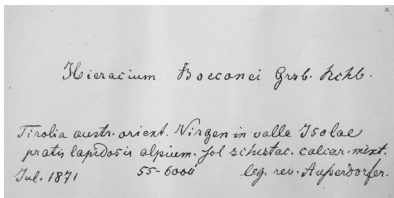 Hieracium Bocconei Grsb. Rchb.
Tirolia austr. orient. Virgen in valle Isolae
pratis lapidosis alpium. Sol schistac. calcar. mixt.
Jul. 1871 55-6000' leg. rev. Außerdorfer.